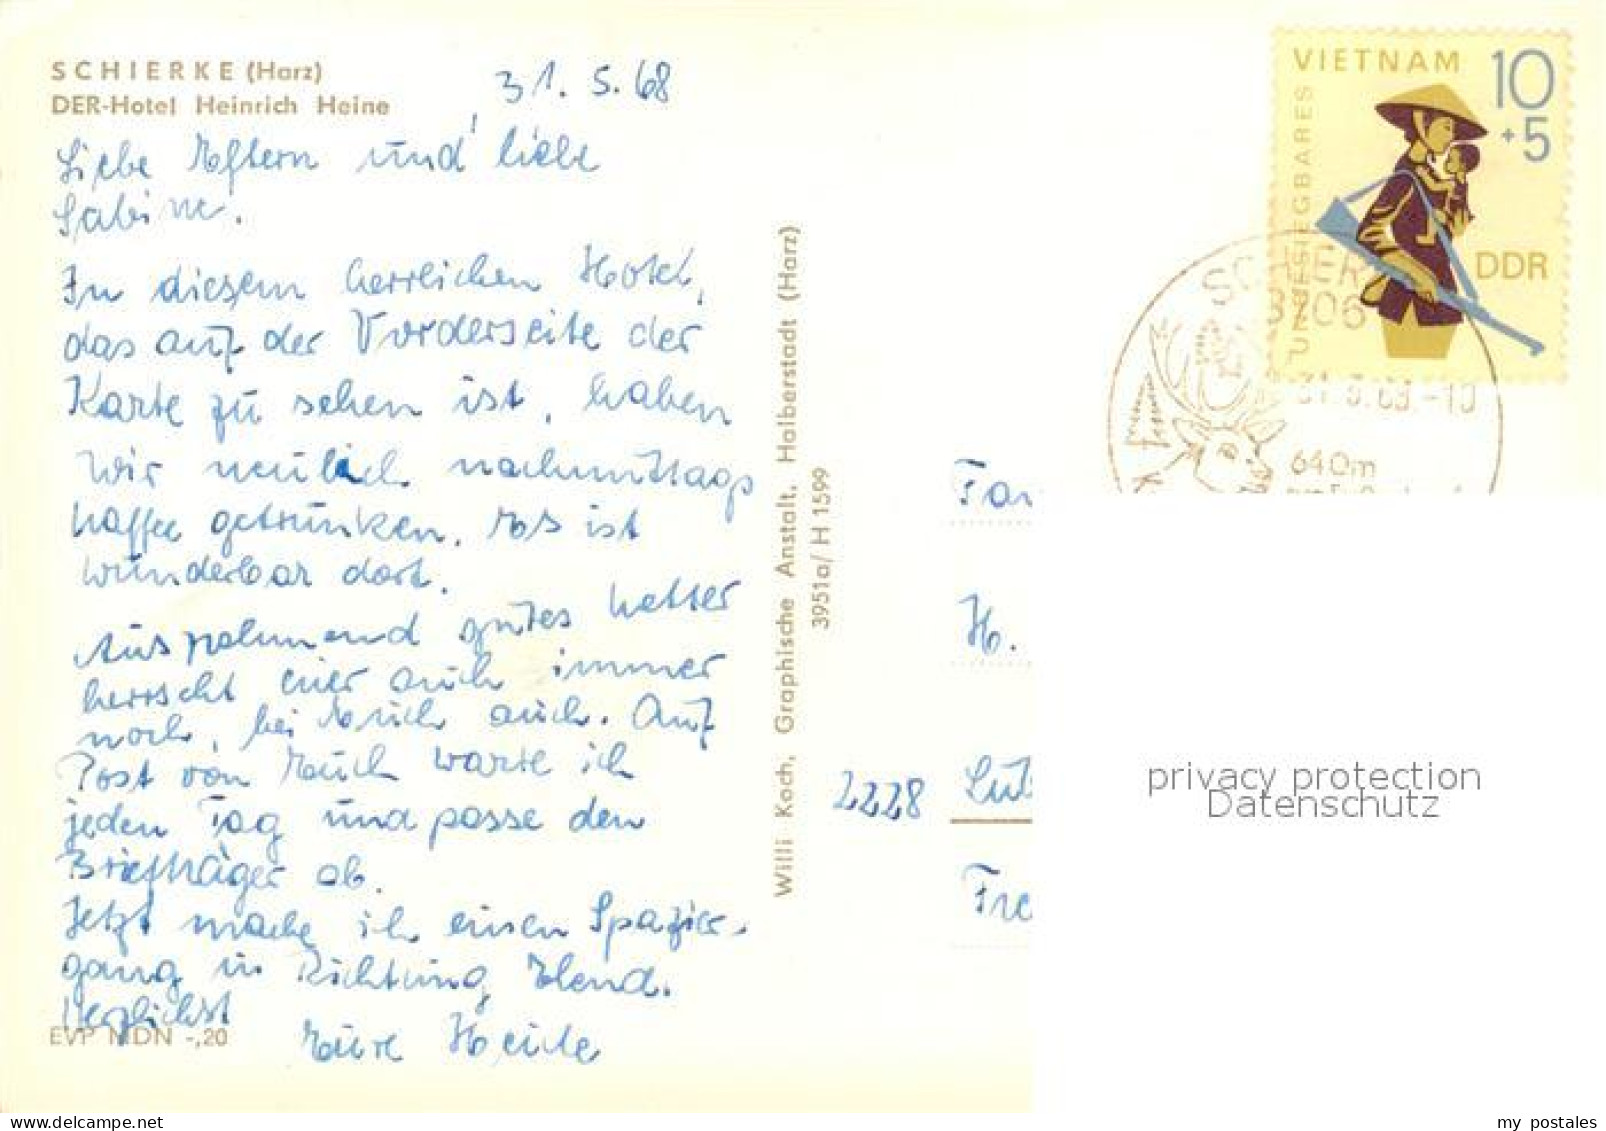 SCHIERKE (Harz)
DER-Hotel Heinrich Heine
31. 5. 68
Liebe Eltern und liebe
Sabine.
In diesem herrlichen Hotel,
das auf der Vorderseite der
Karte zu sehen ist, haben
wir neulich nachmittags
Kaffee getrunken. Es ist
wunderbar dort.
Ausnehmend gutes Wetter
herrscht hier auch immer
noch, bei Euch auch. Auf
Post von Euch warte ich
jeden Tag und passe den
Briefträger ab.
Jetzt mache ich einen Spazier-
gang in Richtung Elend.
Herzlichst
Eure Heide
EVP MDN -,20
Willi Koch, Graphische Anstalt, Halberstadt (Harz)
3951a/ H 1599
VIETNAM
UNBESIEGBARES
10
+5
DDR
SCHIER
3706
640m
Fam
H.
2228
Fre
privacy protection
Datenschutz
my postales